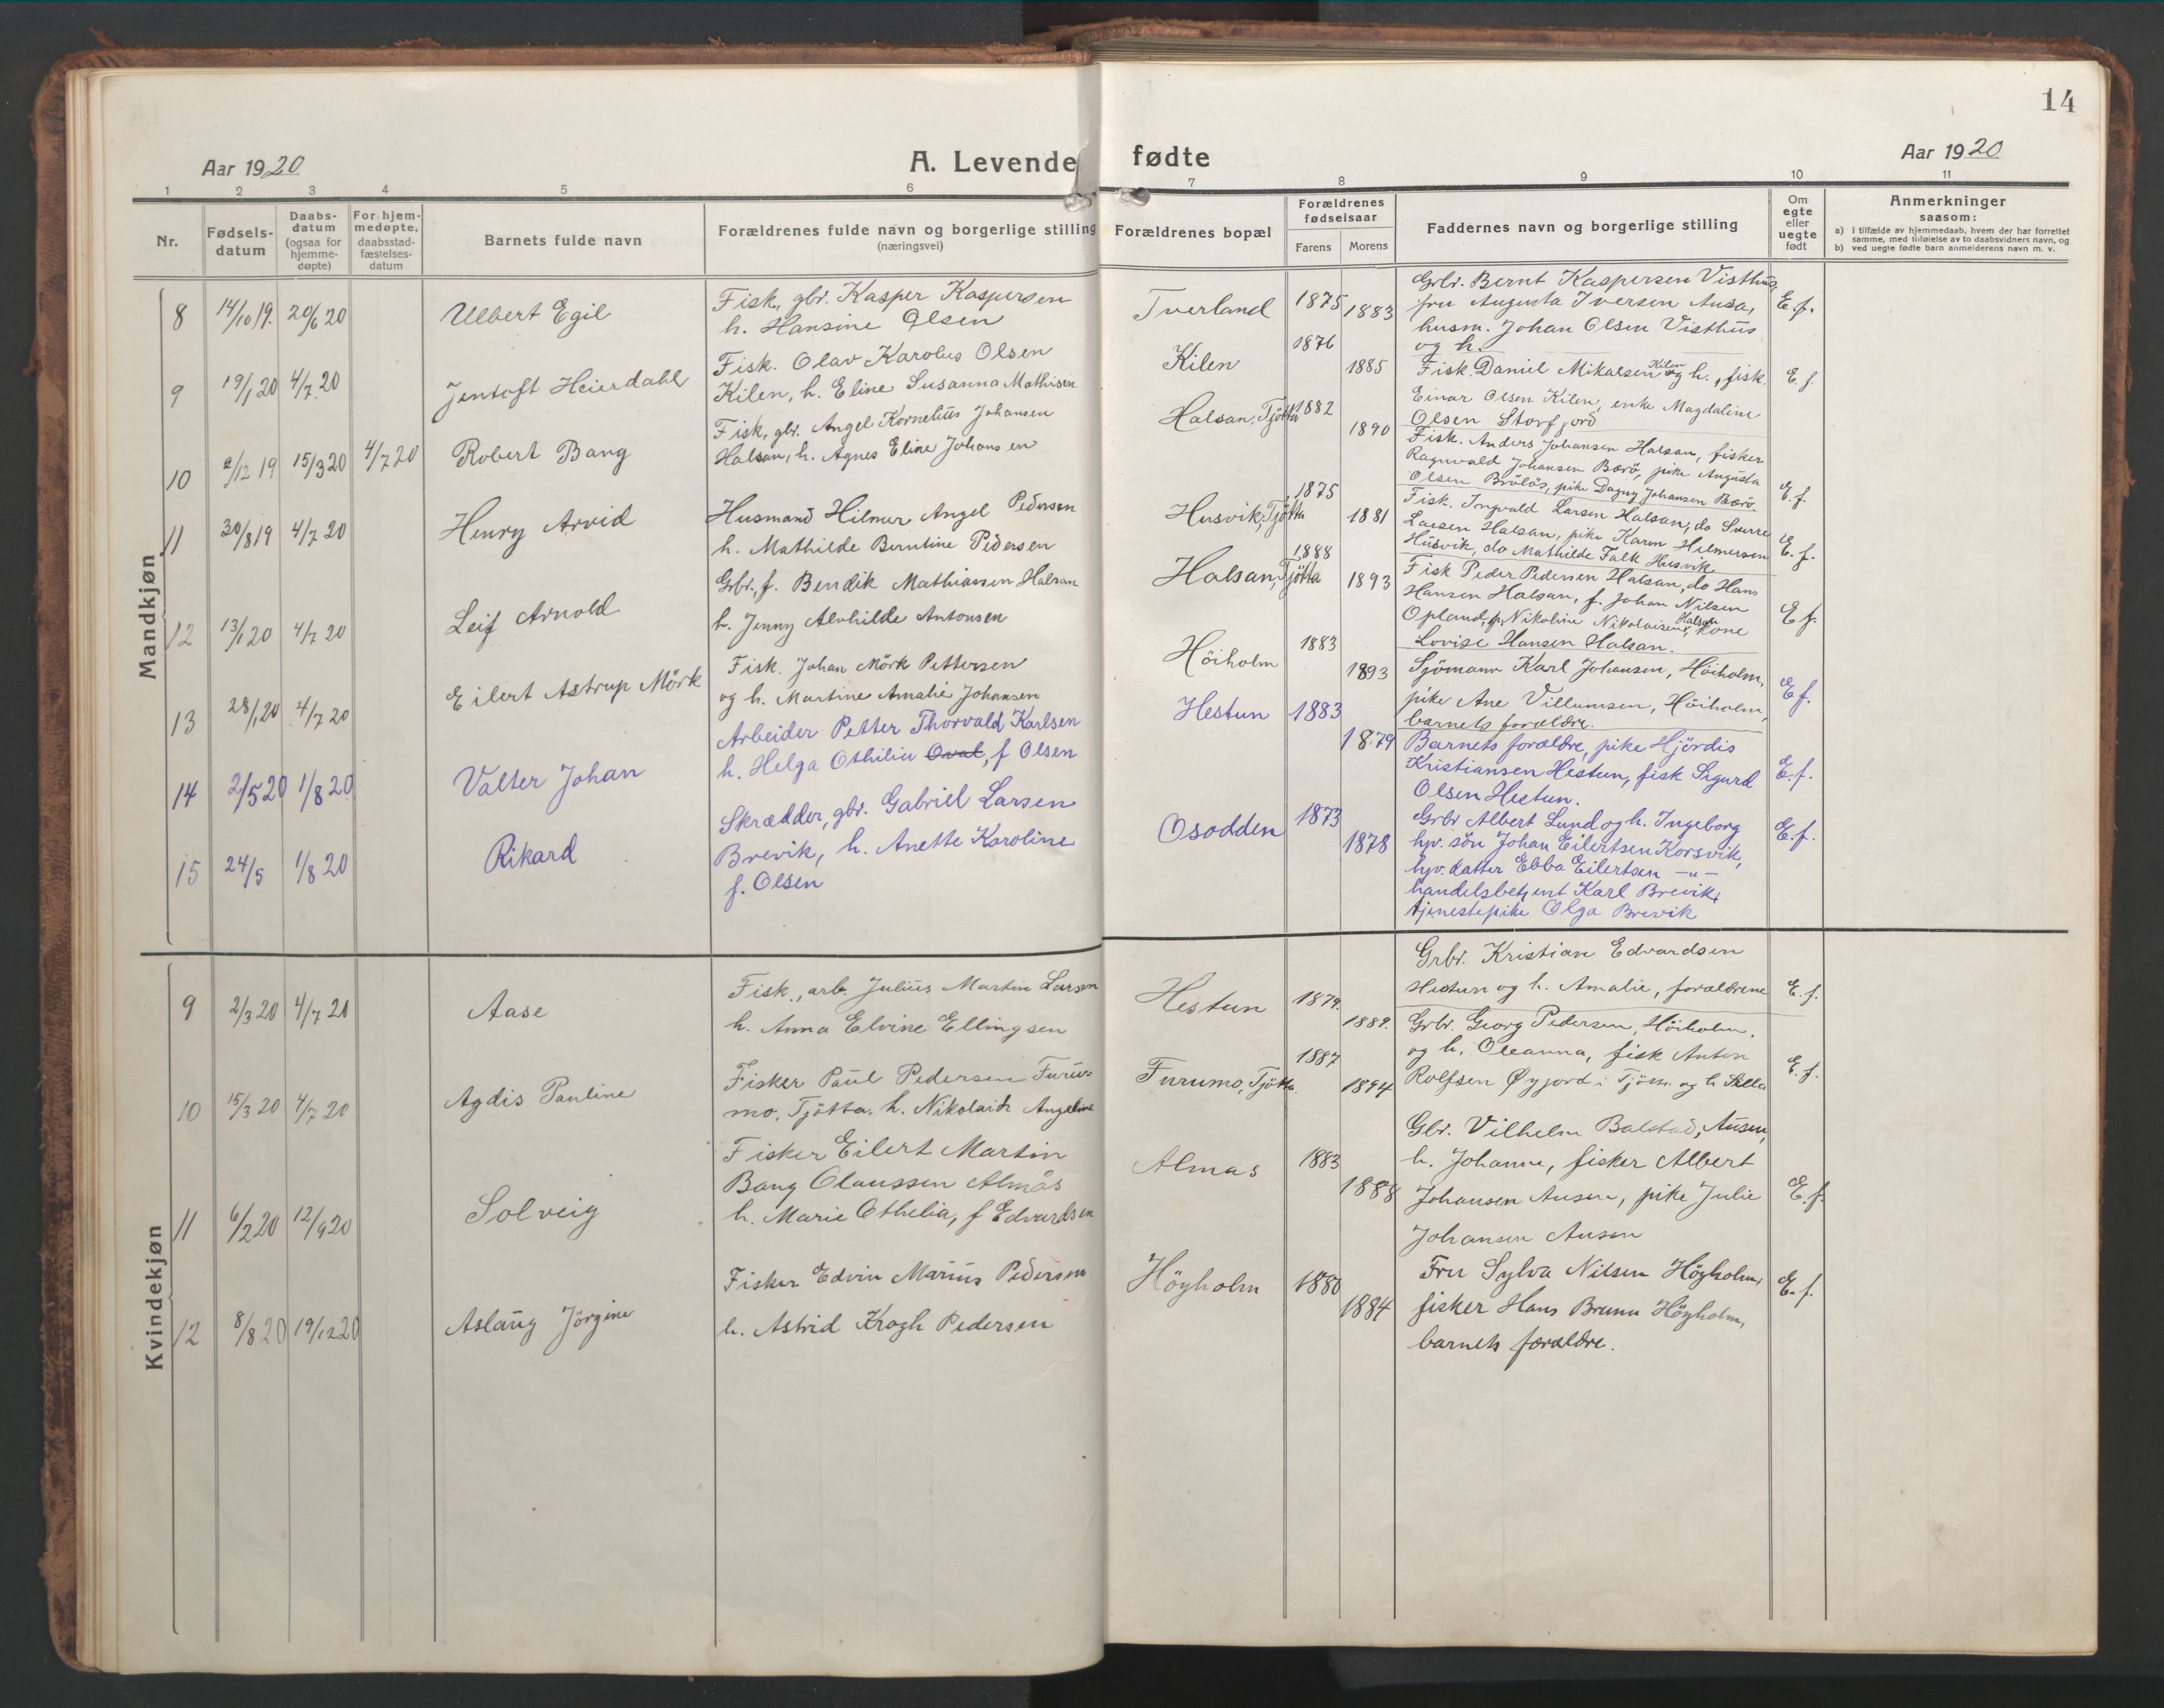 14
Aar 1920
A. Levende fødte
Aar 1920
1 2 3 4 5 6 7 8 9 10 11
Nr.
Fødsels-
datum
Daabs-
datum
(ogsaa for
hjemme-
døpte)
For hjem-
medøpte,
daabsstad-
fæstelses-
datum
Barnets fulde navn
Forældrenes fulde navn og borgerlige stilling
(næringsvei)
Forældrenes bopæl
Forældrenes
fødselsaar
Farens
Morens
Faddernes navn og borgerlige stilling
Om
egte
eller
uegte
født
Anmerkninger
saasom:
a) i tilfælde av hjemmedaab, hvem der har forrettet
samme, med tilføielse av to daabsvidners navn, og
b) ved uegte fødte barn anmelderens navn m. v.
Mandkjøn
8 14/10 19. 20/6 20 Ulbert Egil
Fisk, gbr. Kasper Kaspersen
h. Hansine Olsen
Tverland 1875 1883
Grbr. Bernt Kaspersen Visthus,
fru Augusta Iversen Ausa,
husm. Johan Olsen Visthus
og h.
E. f.
9 19/1 20 4/7 20 Jentoft Heierdahl
Fisk. Olav Karolus Olsen
Kilen, h. Eline Susanna Mathisen
Kilen 1876 1885
Fisk. Daniel Mikalsen Kilen og h., fisk.
Einar Olsen Kilen, enke Magdaline
Olsen Storfjord
E. f.
10 2/12 19 15/3 20 4/7 20 Robert Bang
Fisk, gbr. Angel Kornelius Johansen
Halsan, h. Agnes Eline Johansen
Halsan, Tjötta 1882 1890
Fisk. Anders Johansen Halsan, fisker
Ragnvald Johansen Bærö, pike Augusta
Olsen Brölös, pike Dagny Johansen Bærö.
E. f.
11 30/8 19 4/7 20 Henry Arvid
Husmand Hilmer Angel Pedersen
h. Mathilde Berntine Pedersen
Husvik, Tjötta 1875 1881
Fisk. Ingvald Larsen Halsan, do Sverre
Larsen Halsan, pike Karen Hilmersen
Husvik, do Mathilde Falk Husvik
E. f.
12 13/1 20 4/7 20 Leif Arnold
Grbr., f. Bendik Mathiassen Halsan
h. Jenny Alvhilde Antonsen
Halsan, Tjötta 1888 1893
Fisk Peder Pedersen Halsan, do Hans
Hansen Halsan, f. Johan Nilsen
Opland, p. Nikoline Nikolaisen Halsan, kone
Lovise Hansen Halsan.
E f.
13 28/1 20 4/7 20 Eilert Astrup Mörk
Fisk. Johan Mörk Pettersen
og h. Martine Amalie Johansen
Höiholm 1883 1893
Sjömann Karl Johansen, Höiholm,
pike Ane Villumsen, Höiholm,
barnets forældre.
E f.
14 2/5 20 1/8 20 Valter Johan
Arbeider Petter Thorvald Karlsen
h. Helga Othilie Oval, f Olsen
Hestun 1883 1879
Barnets forældre, pike Hjördis
Kristiansen Hestun, fisk Sigurd
Olsen Hestun.
E. f.
15 24/5 1/8 20 Rikard
Skrædder, gbr. Gabriel Larsen
Brevik, h. Anette Karoline
f. Olsen
Osodden 1873 1878
Grbr Albert Lund og h. Ingeborg
hjv. sön Johan Eilertsen Korsvik,
hjv. datter Ebba Eilertsen — " —
handelsbetjent Karl Brevik,
tjenestepike Olga Brevik
E. f.
Kvindekjøn
9 2/3 20 4/7 20 Aase
Fisk., arb. Julius Martin Larsen
h. Anna Elvine Ellingsen
Hestun 1879. 1889.
Grbr. Kristian Edvardsen
Hestun og h. Amalie, forældrene
E. f.
10 15/3 20 4/7 20 Agdis Pauline
Fisker Paul Pedersen Furu-
mo, Tjötta. h. Nikolaide Angeline
Furumo, Tjötta 1887 1894
Grbr. Georg Pedersen, Höiholm.
og h. Oleanna, fisk Anton
Rolfsen Øyjord i Tjötta og h
E. f.
11 6/2 20 12/9 20 Solveig
Fisker Eilert Martin
Bang Olaussen Almås
h. Marie Othelia, f Edvardsen
Almas 1883 1888
Gbr. Vilhelm Balstad, Ausen,
h. Johanne, fisker Albert
Johansen Ausen, pike Julie
Johansen Ausen
E. f.
12 8/8 20 19/12 20 Aslaug Jörgine
Fisker Edvin Marius Pedersen
h. Astrid Krogh Pedersen
Höyholm 1880 1884
Fru Sylva Nilsen Höyholm,
fisker Hans Brunn Höyholm,
barnets forældre.
E. f.